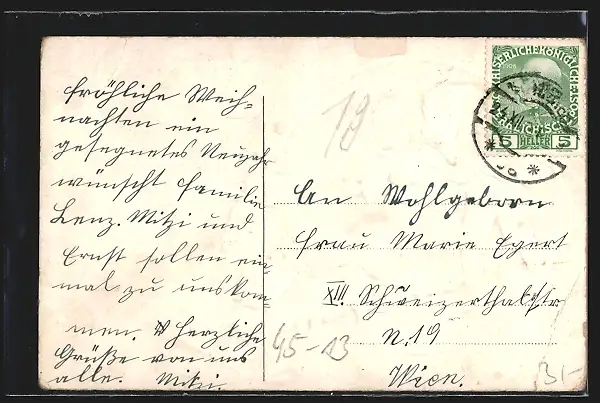 fröhliche Weih-
nachten ein
gesegnetes Neujahr
wünscht Familie
Lenz. Mitzi und
Ernst sollen ein-
mal zu uns kom-
men. Herzliche
Grüße von uns
alle. Mitzi.
19
KAISERLICHE KÖNIGLICHE ÖST
5 HELLER 5
XII
An Wohlgeborn
Frau Marie Egert
XIII. Schweizerthalstr
N. 19
Wien.
45-13
31-